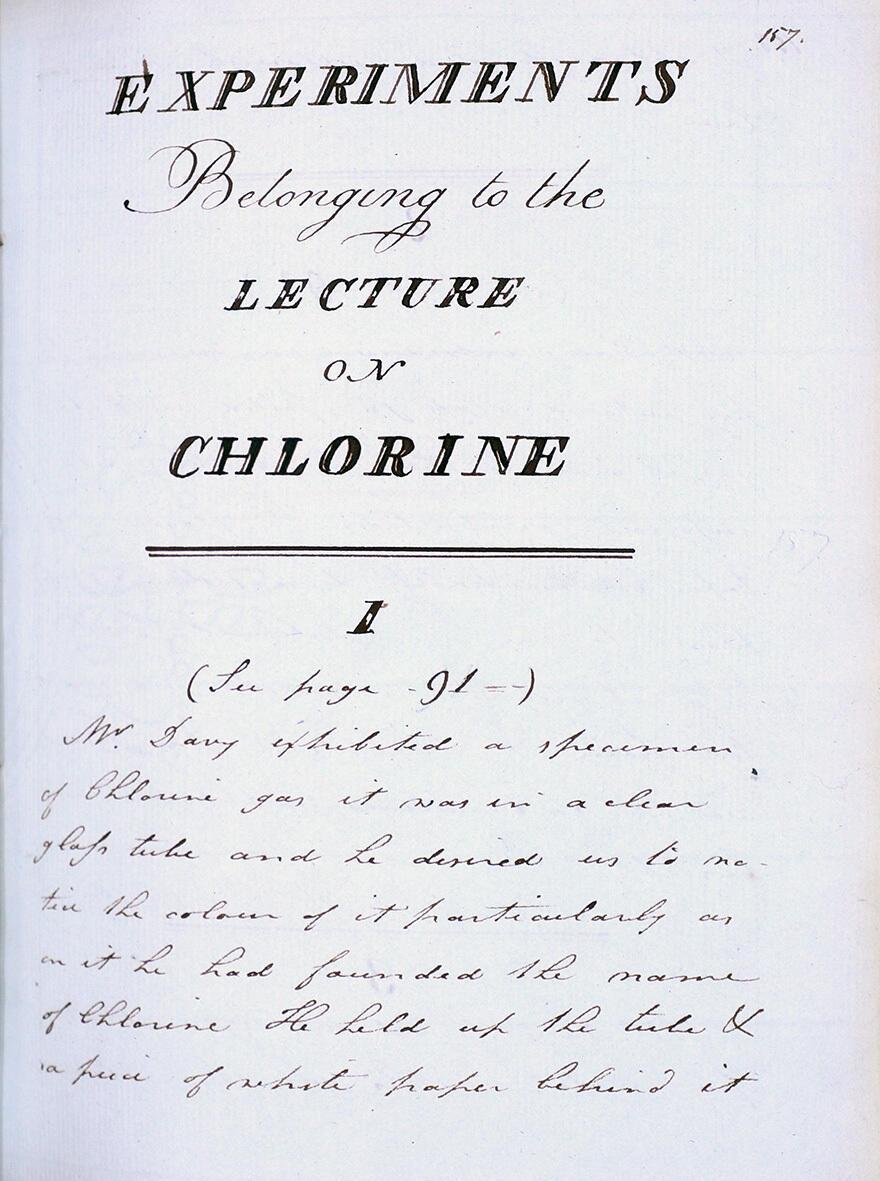 157.
EXPERIMENTS
Belonging to the
LECTURE
ON
CHLORINE
1
(See page -91--)
Mr. Davy exhibited a specimen
of Chlorine gas it was in a clear
glaſs tube and he desired us to no-
tice the colour of it particularly as
on it he had founded the name
of Chlorine He held up the tube &
a piece of white paper behind it
157